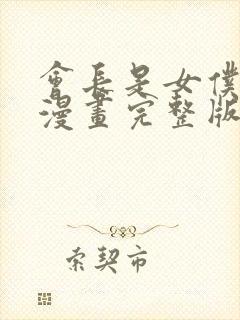 會長是女僕
漫畫完整版
索契市